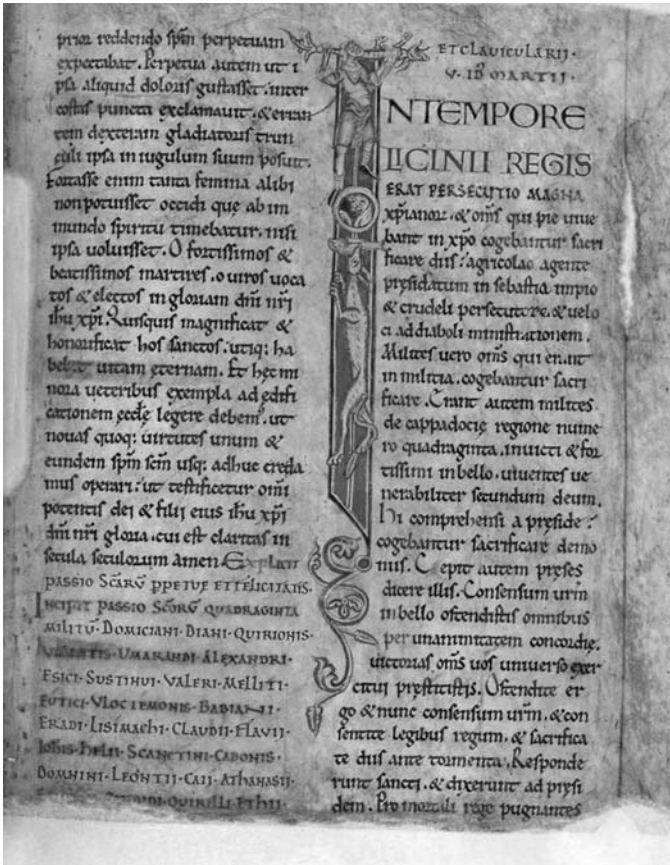 prior reddendo sp̄m perpetuam
expectabat. Perpetua autem ut i
psa aliquid doloris gustasset. inter
costas puncta exclamauit. & erran
tem dexteram gladiatoris trun
culi ipsa in iugulum suum posuit.
Fortasse enim tanta femina alibi
non potuisset occidi quę ab im
mundo spiritu timebatur. nisi
ipsa uoluisset. O fortissimos &
beatissimos martires. o uiros uoca
tos & electos in gloriam dn̄i nr̄i
ih̄u xp̄i. Quisquis magnificat &
honorificat hos sanctos. utiq: ha
bebit uitam ęternam. Et hęc mi
nora ueteribus exempla ad ędifi
cationem ęcclę legere debem᾽. ut
nouas quoq: uirtutes unum &
eundem sp̄m sc̄m usq: adhuc creda
mus operari. ut testificetur omi
potentis dei & filii eius ih̄u xp̄i
dn̄i nr̄i gloria. cui est claritas in
secula seculorum amen. Explicit
PASSIO SC̄ARV̄ PPETUĘ ET FELICITATIS.
INCIPIT PASSIO SC̄ORV̄ QUADRAGINTA
MILITV̄· DOMICIANI· DIANI· QUIRIONIS·
UMARANDI· ALEXANDRI·
ESICI· SUSTIHUI· VALERI· MELLITI·
EUTICI· VLOCTEMONIS· BABIANI·
ERADI· LISIMACHI· CLAUDII· FLAVII·
IOHIS· HELII· SCANCTINI· CADONIS·
DOMNINI· LEONTII· CAII· ATHANASII·
QUIRILLI· ETHII·
ET CLAVICULARII·
V· ID̄ MARTII·
IN TEMPORE
LICINII REGIS
ERAT PERSECUTIO MAGNA
xp̄ianor. & om̄s qui pie uiue
bant in xp̄o cogebantur sacri
ficare diis. agricolao agente
pręsidatum in sebastia impio
& crudeli persecutore. & uelo
ci ad diaboli ministrationem.
Milites uero om̄s qui erant
in militia. cogebantur sacri
ficare. Erant autem milites
de cappadocię regione nume
ro quadraginta. inuicti & for
tissimi in bello. uiuentes ue
nerabiliter secundum deum.
Hi comprehensi a pręside
cogebantur sacrificare demo
niis. Cepit autem pręses
dicere illis. Consensum ur̄m
in bello ostendistis omnibus
per unanimitatem concordię.
uictorias om̄s uos uniuerso exer
citui pręstitistis. Ostendite er
go & nunc consensum ur̄m. & con
sentite legibus regum. & sacrifica
te diis ante tormenta. Responde
runt sancti. & dixerunt ad pręsi
dem. Pro mortali rege pugnantes